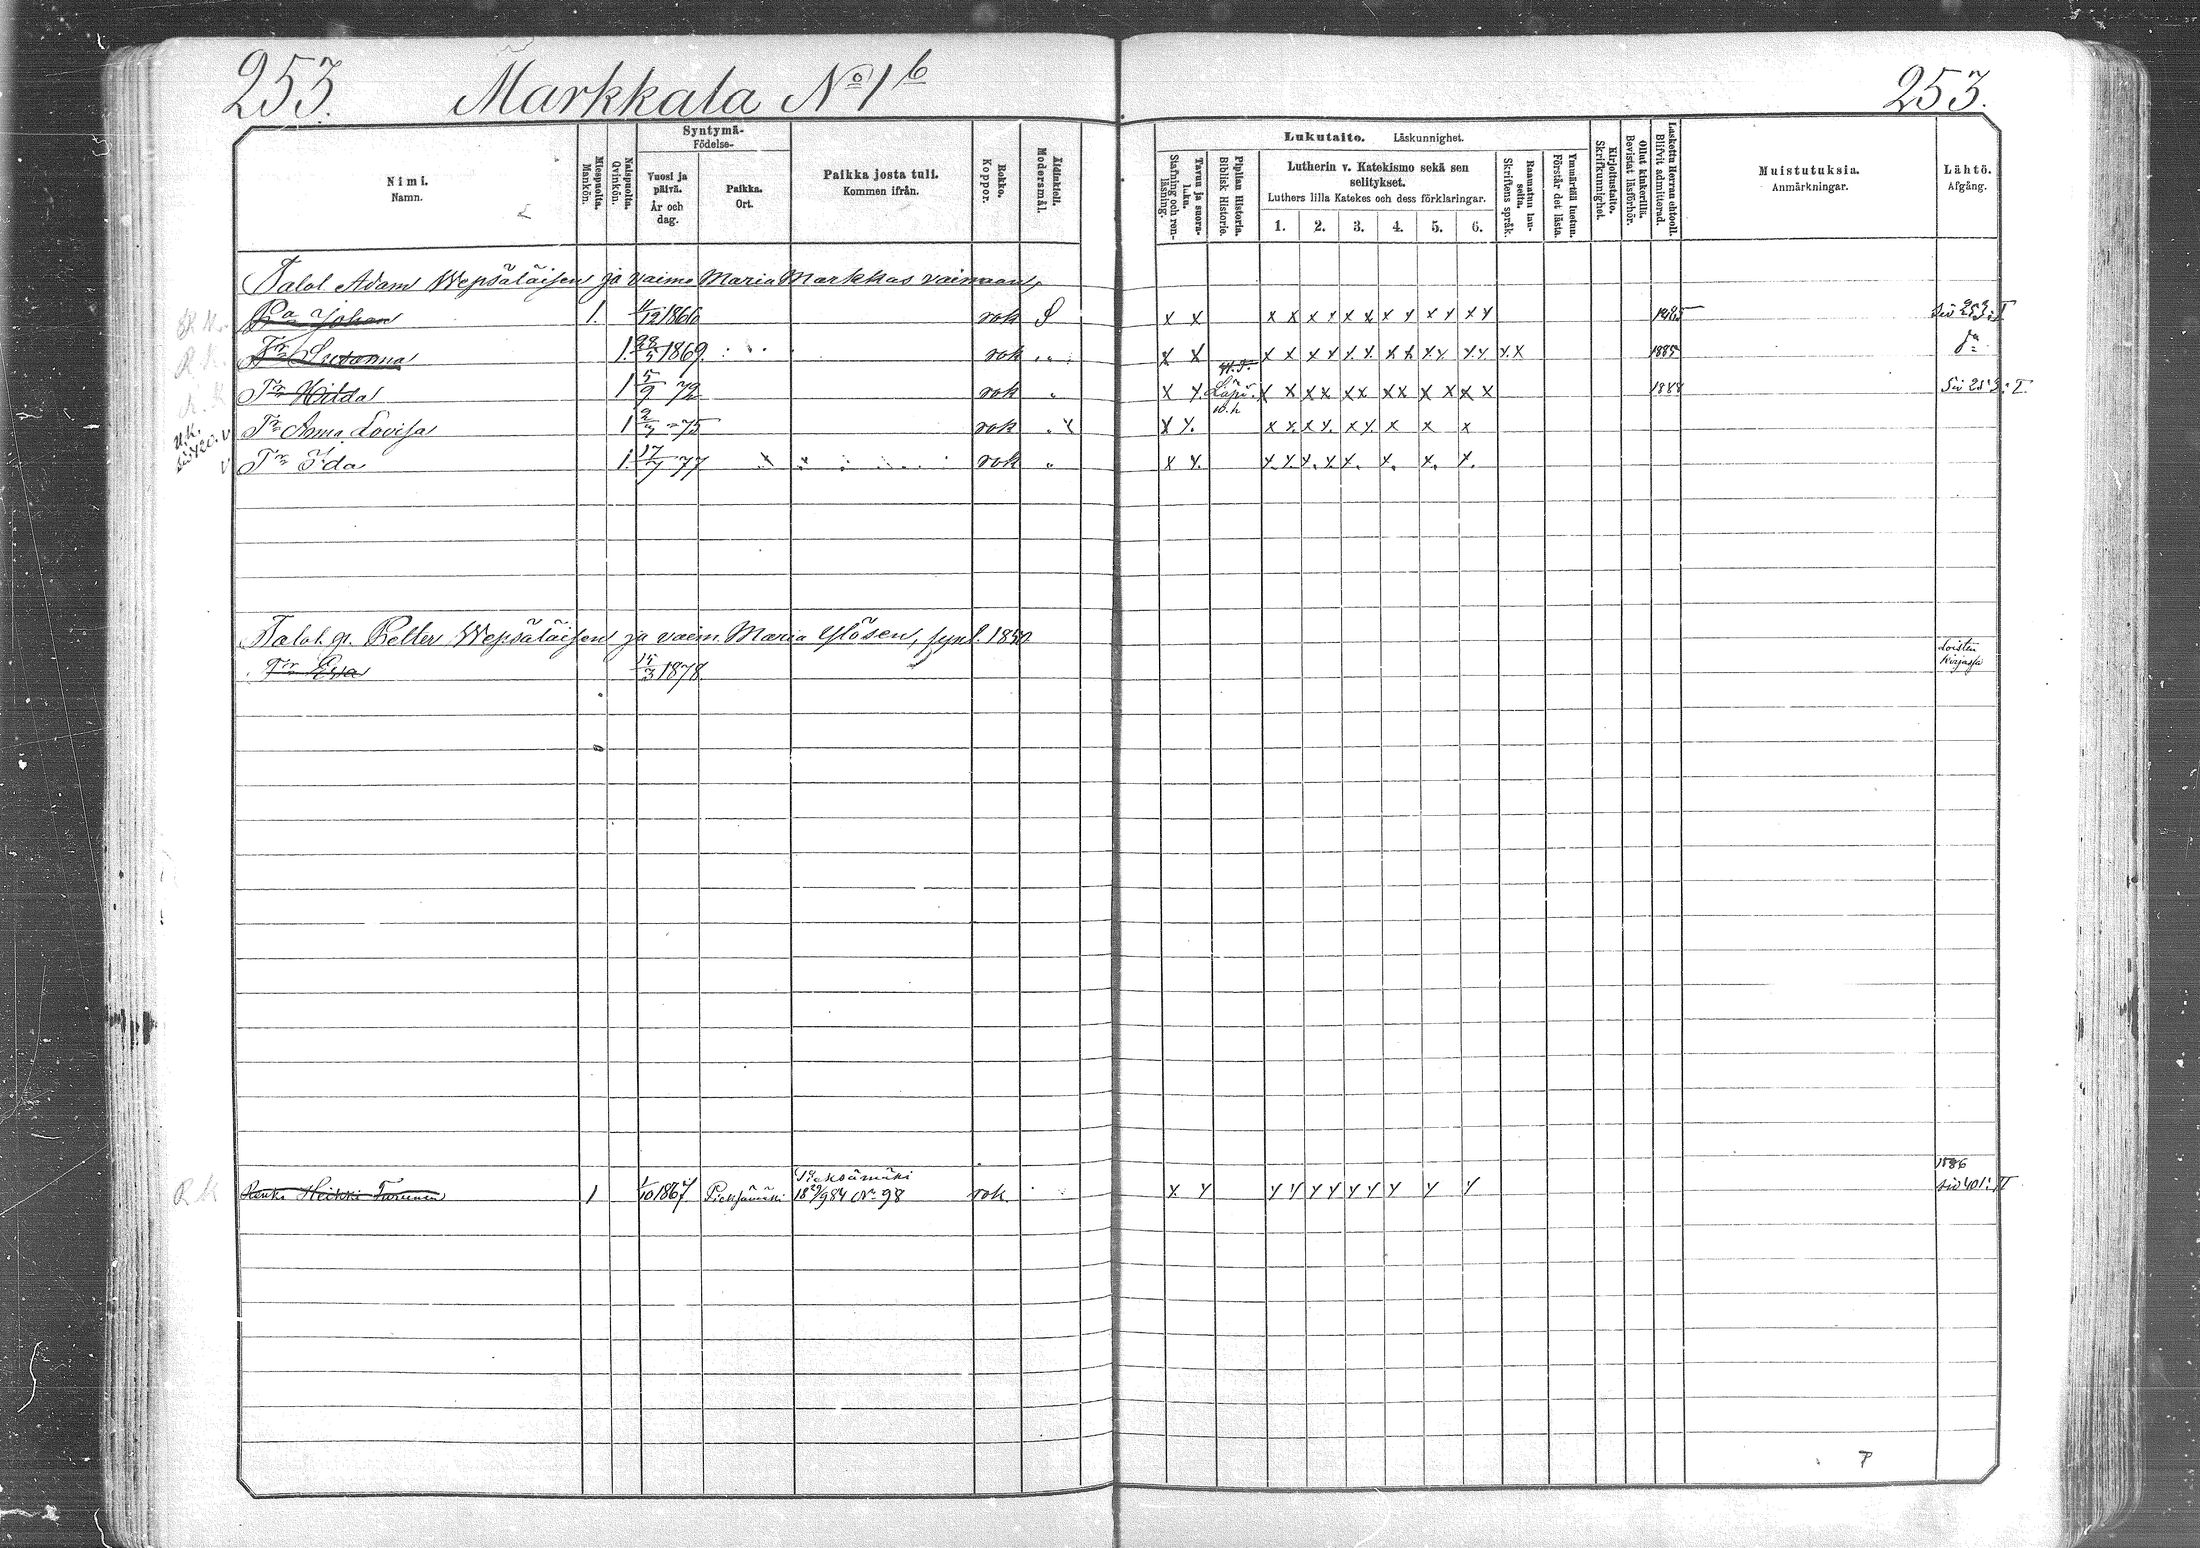 253. Markkala No 1b 253.
Nimi. Namn.
Miespuolta. Mankön.
Naispuolta. Qvinkön.
Syntymä- Födelse-
Vuosi ja päivä. År och dag.
Paikka. Ort.
Paikka josta tuli. Kommen ifrån.
Rokko. Koppor.
Äidinkieli. Modersmål.
Tavuu ja suora-luku. Stafning och ren-läsning.
Piplian Historia. Biblisk Historie.
Lukutaito. Läskunnighet.
Lutherin v. Katekismo sekä sen selitykset.
Luthers lilla Katekes och dess förklaringar.
1. 2. 3. 4. 5. 6.
Raamatun lauseita. Skriftens språk.
Ymmärtää luetun. Förstår det lästa.
Kirjoitustaito. Skrifkunnighet.
Ollut kinkerillä. Bevistat läsförhör.
Laskettu Herran ehtooll. Blifvit admitterad.
Muistutuksia. Anmärkningar.
Lähtö. Afgång.
Talol. Adam Wepsäläisen ja vaimo Maria Markkas vainaan,
Pa Johan 1. 11/12 1866 rok S x x x x x x x x x y x y x y 1885 Siv 253:I
Tr Susanna 1. 28/5 1869. rok x x x x x y x x x x x y x y x x 1885
Tr Hilda 1 5/9 72 rok x y x x x x x x x x x x x x Siv 253:I
Tr Anna Lovisa 1 2/7 75 rok x y. x x. x y. x y. x x x
Tr Ida 1. 17/7 77 rok x y. x. x. x. x. x. x. x. x.
Talol. p. Petter Wepsäläisen ja vaim. Maria Ylösen, synt. 1850
Tr Eva 15/3 1878. Loisten kirjassa
R K Renki Heikki Turunen 1 1/10 1867 Pieksämäki Pieksämäki 18 29/9 84 No 98 rok x y y y y y y y y y 1886 siv 401:II